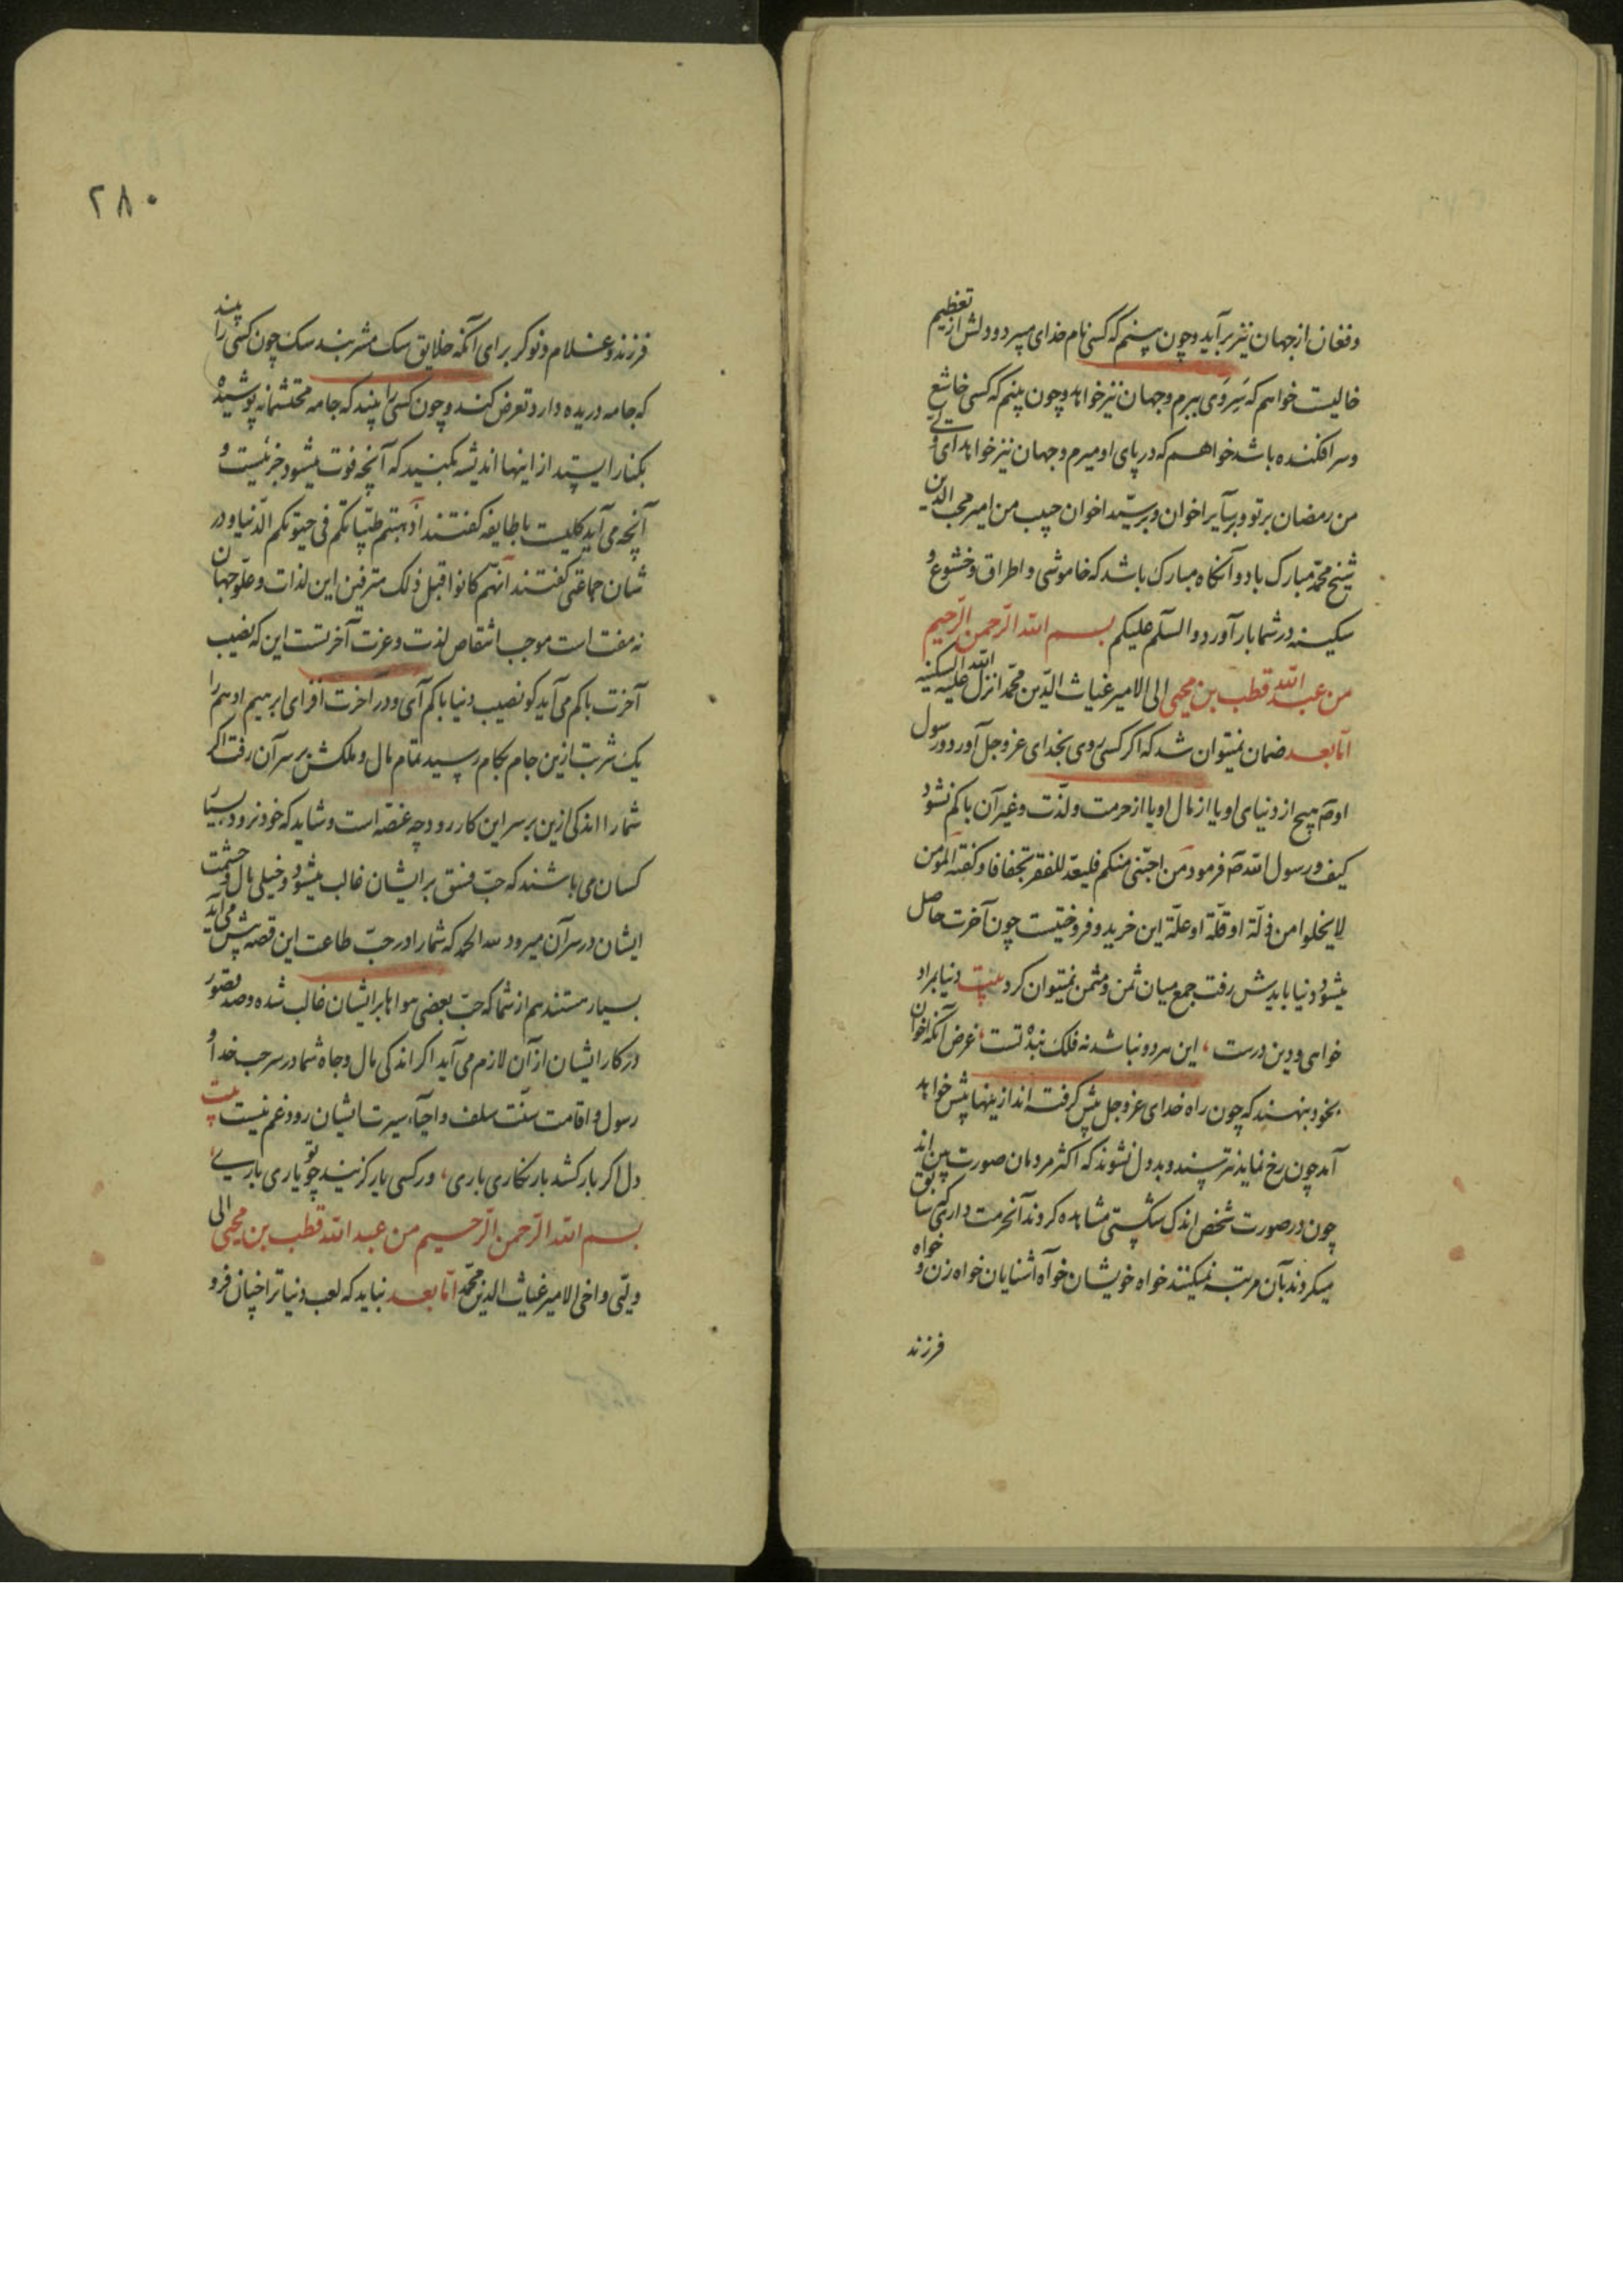 وفغان از جهان نیز برآید و چون بینم که کسی نام خدای میبرد و دلش از تعظیم
خالیست خواهم که سر وی ببرم و جهان نیز خواهد و چون بینم که کسی خاشع
وسرافکنده باشد خواهم که در پای او میرم و جهان نیز خواهد ای ولی
من رمضان بر تو و بر سایر اخوان و بر سید اخوان حبیب من امیر محب الدین
شیخ محمد مبارک باد و آنگاه مبارک باشد که خاموشی و اطراق و خشوع و
سکینه در شما بار آورد و السلم علیکم بسم الله الرحمن الرحیم
من عبد الله قطب بن محیی الی الامیر غیاث الدین محمد انزل الله السکینه علیه
اما بعد ضمان نمیتوان شد که اگر کسی روی بخدای عز و جل آورد و رسول
او هیچ از دنیای او یا از مال او یا از حرمت و لذت و غیر آن باکم نشود
کیف و رسول الله فرمود من احبنی منکم فلیعد للفقر تجفافا و کفته المؤمن
لا یخلوا من ذلة او قلة او علة این خرید و فروختیست چون آخرت حاصل
میشود دنیا بایدش رفت جمع میان ثمن و مثمن نمیتوان کرد بیت دنیا بمراد
خواهی و دین درست، این هر دو نباشد نه فلک بنده تست، غرض آنکه اخوان
بخود بنهند که چون راه خدای عز و جل پیش گرفته اند ازینها پیش خواهد
آمد چون رخ نماید نترسند و بددل نشوند که اکثر مردمان صورت بین اند
چون در صورت شخص اندک شکستی مشاهده کردند آن حرمت دارئی که سابق
میکردند بآن مرتبه نمیکنند خواه خویشان خواه آشنایان خواه زن و خواه
فرزند
۲۸۰
فرزند و غلام و نوکر برای آنکه خلایق سک مشربند سک چون کسی را بیند
که جامه دریده دارد تعرض کند و چون کسی را بیند که جامه محتشمانه پوشیده
بکنار ایستد از اینها اندیشه مکنید که آنچه فوت میشود جزئیست و
آنچه می آید کلیست با طایفه گفتند أذهبتم طیباتکم فی حیوتکم الدنیا و در
شان جماعتی گفتند انهم کانوا قبل ذلک مترفین این لذات و علو جهان
نه مفت است موجب انتقاص لذت و عزت آخرتست این که نصیب
آخرت باکم می آید کو نصیب دنیا باکم آی و در اخرت افزای ابرهیم ادهم را
یک شربت ازین جام بکام رسید تمام مال و ملکش بر سر آن رفت اگر
شما را اندکی ازین بر سر این کار رود چه غصه است و شاید که خود نرود بسیار
کسان می باشند که حب فسق بر ایشان غالب میشود و خیلی مال و حشمت
ایشان در سر آن میرود لله الحمد که شما را در حب طاعت این قصه پیش می آید
بسیار هستند هم از شما که حب بعضی هواها بر ایشان غالب شده و صد قصور
در کار ایشان از آن لازم می آید اگر اندکی مال و جاه شما در سر حب خدا و
رسول و اقامت سنت سلف و احیاء سیرت ایشان رود غم نیست بیت
دل اگر بار کشد بار نگاری باری، ور کسی یار گزیند چو تو یاری باری،
بسم الله الرحمن الرحیم من عبد الله قطب بن محیی الی
ولیی و اخی الامیر غیاث الدین محمد اما بعد نباید که لعب دنیا ترا چنان فرو